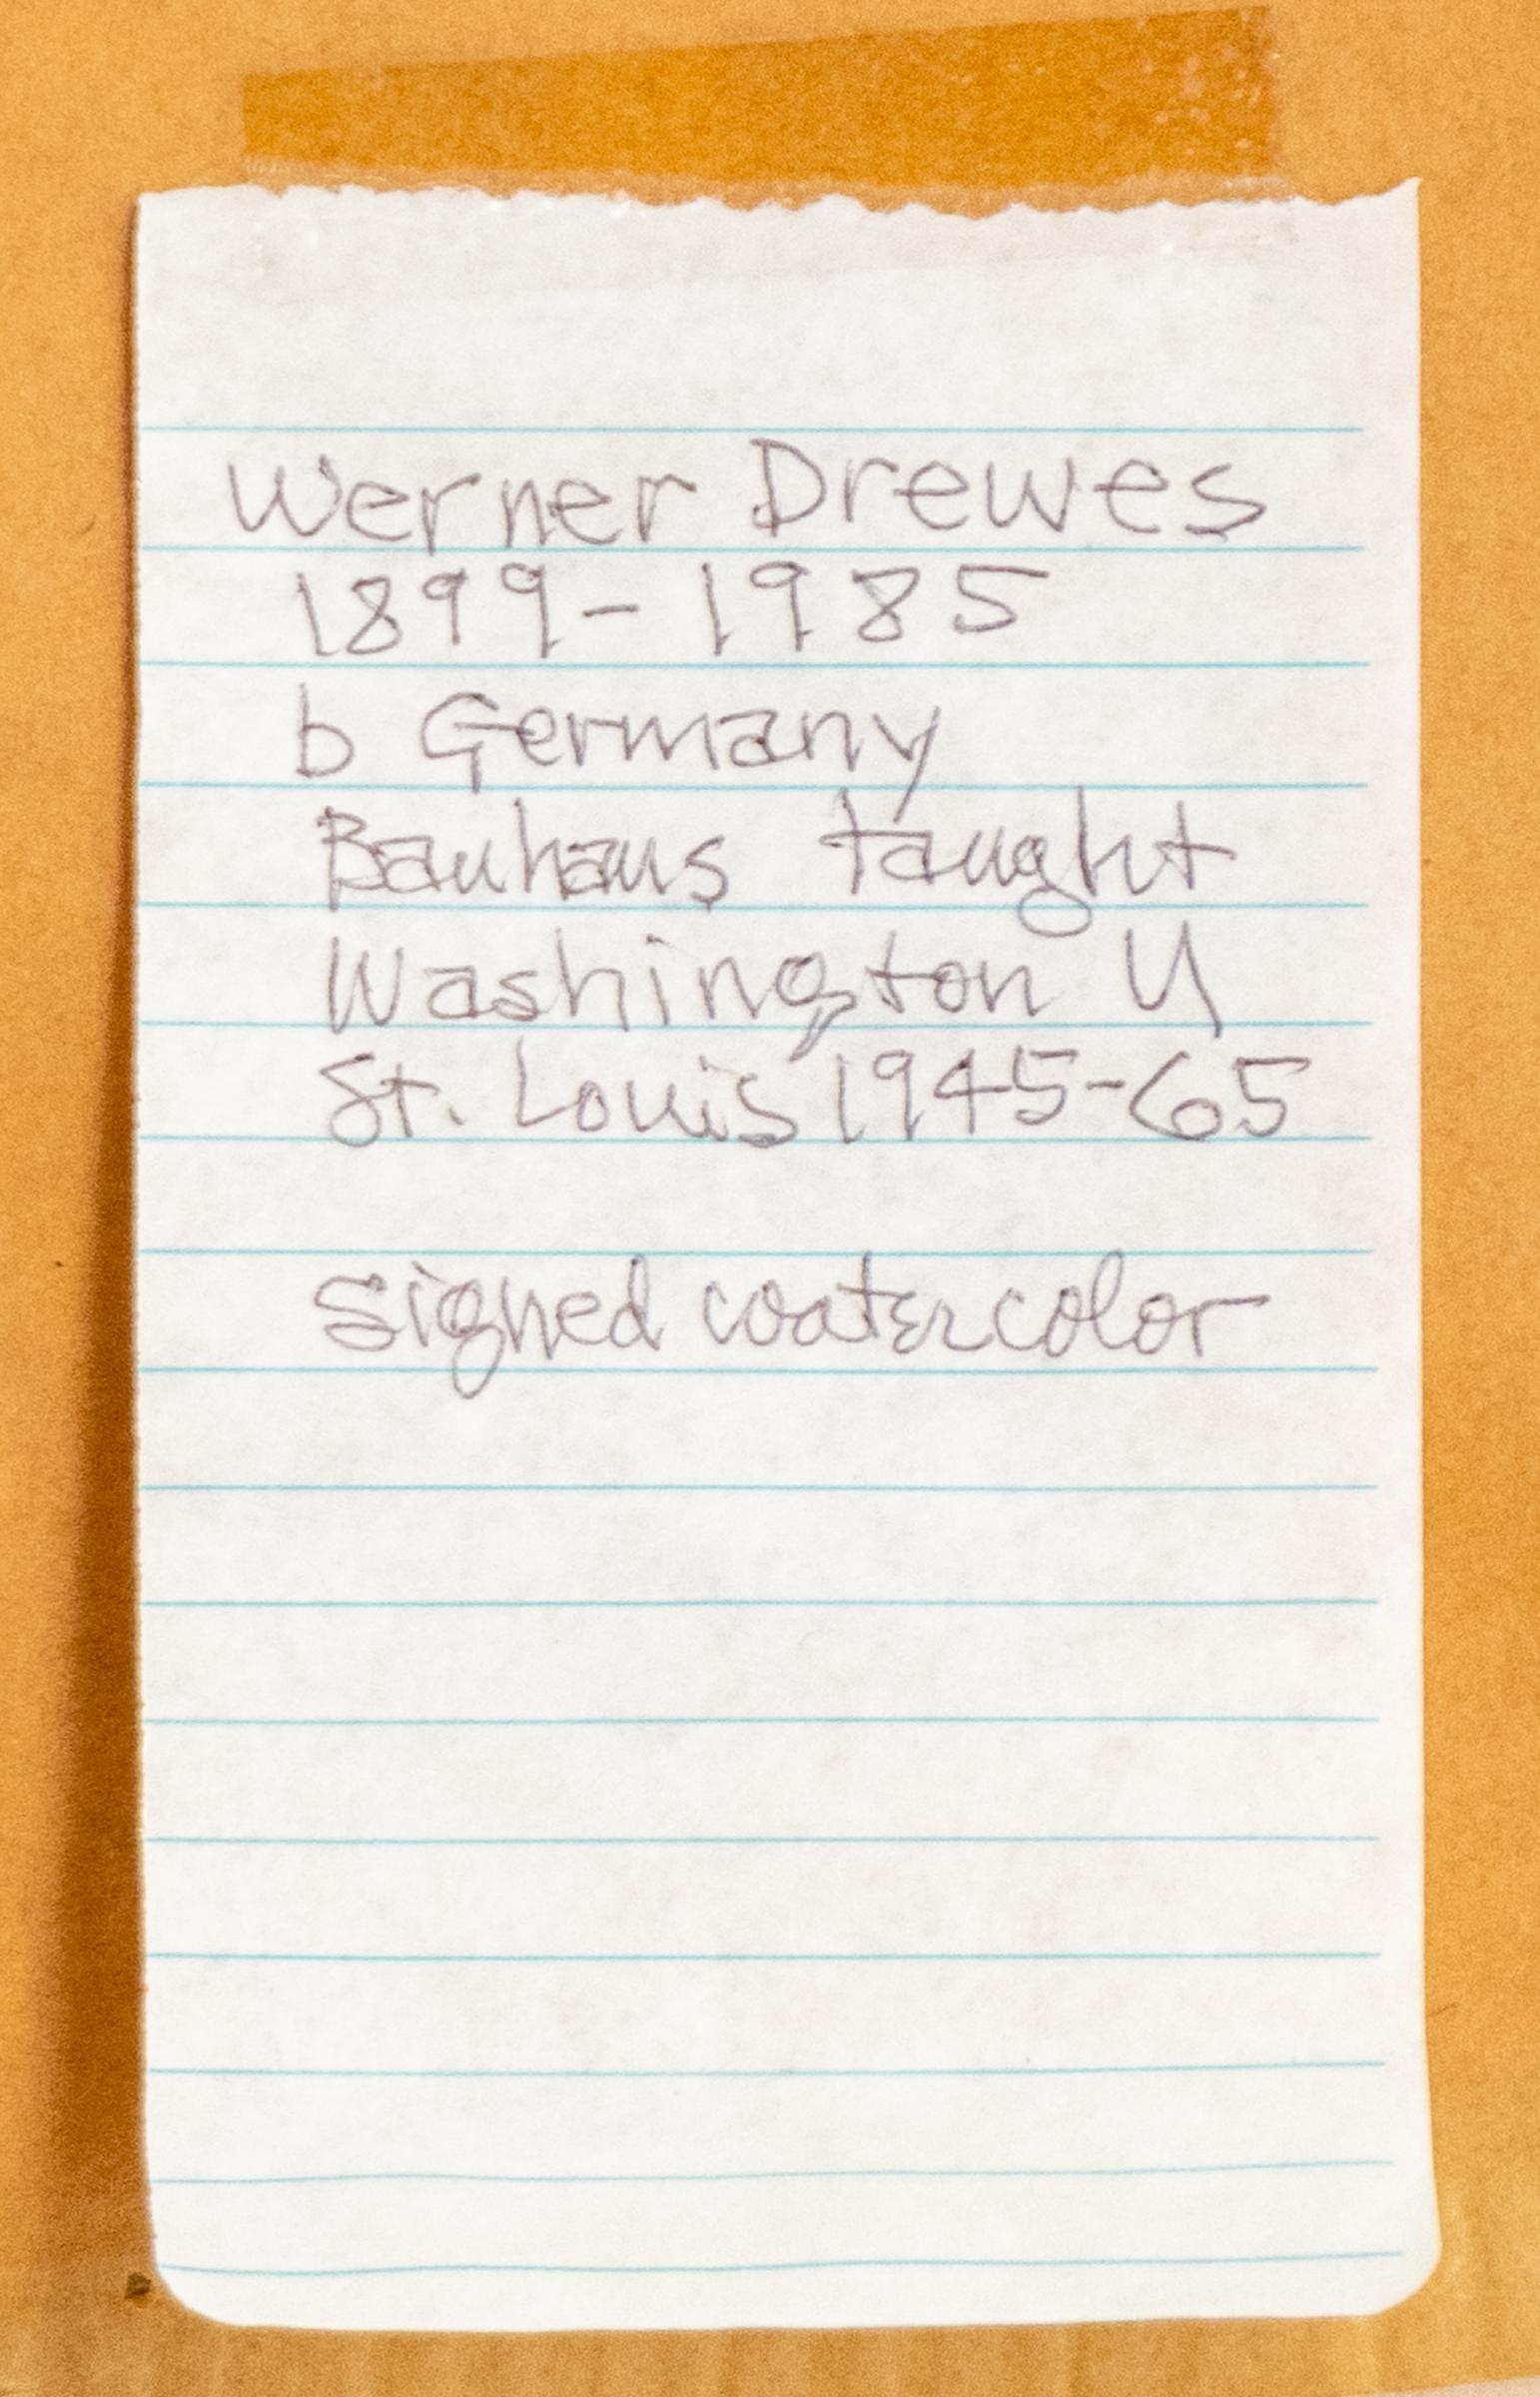 Werner Drewes
1899-1985
b Germany
Bauhaus taught
Washington U
St. Louis 1945-65
signed watercolor